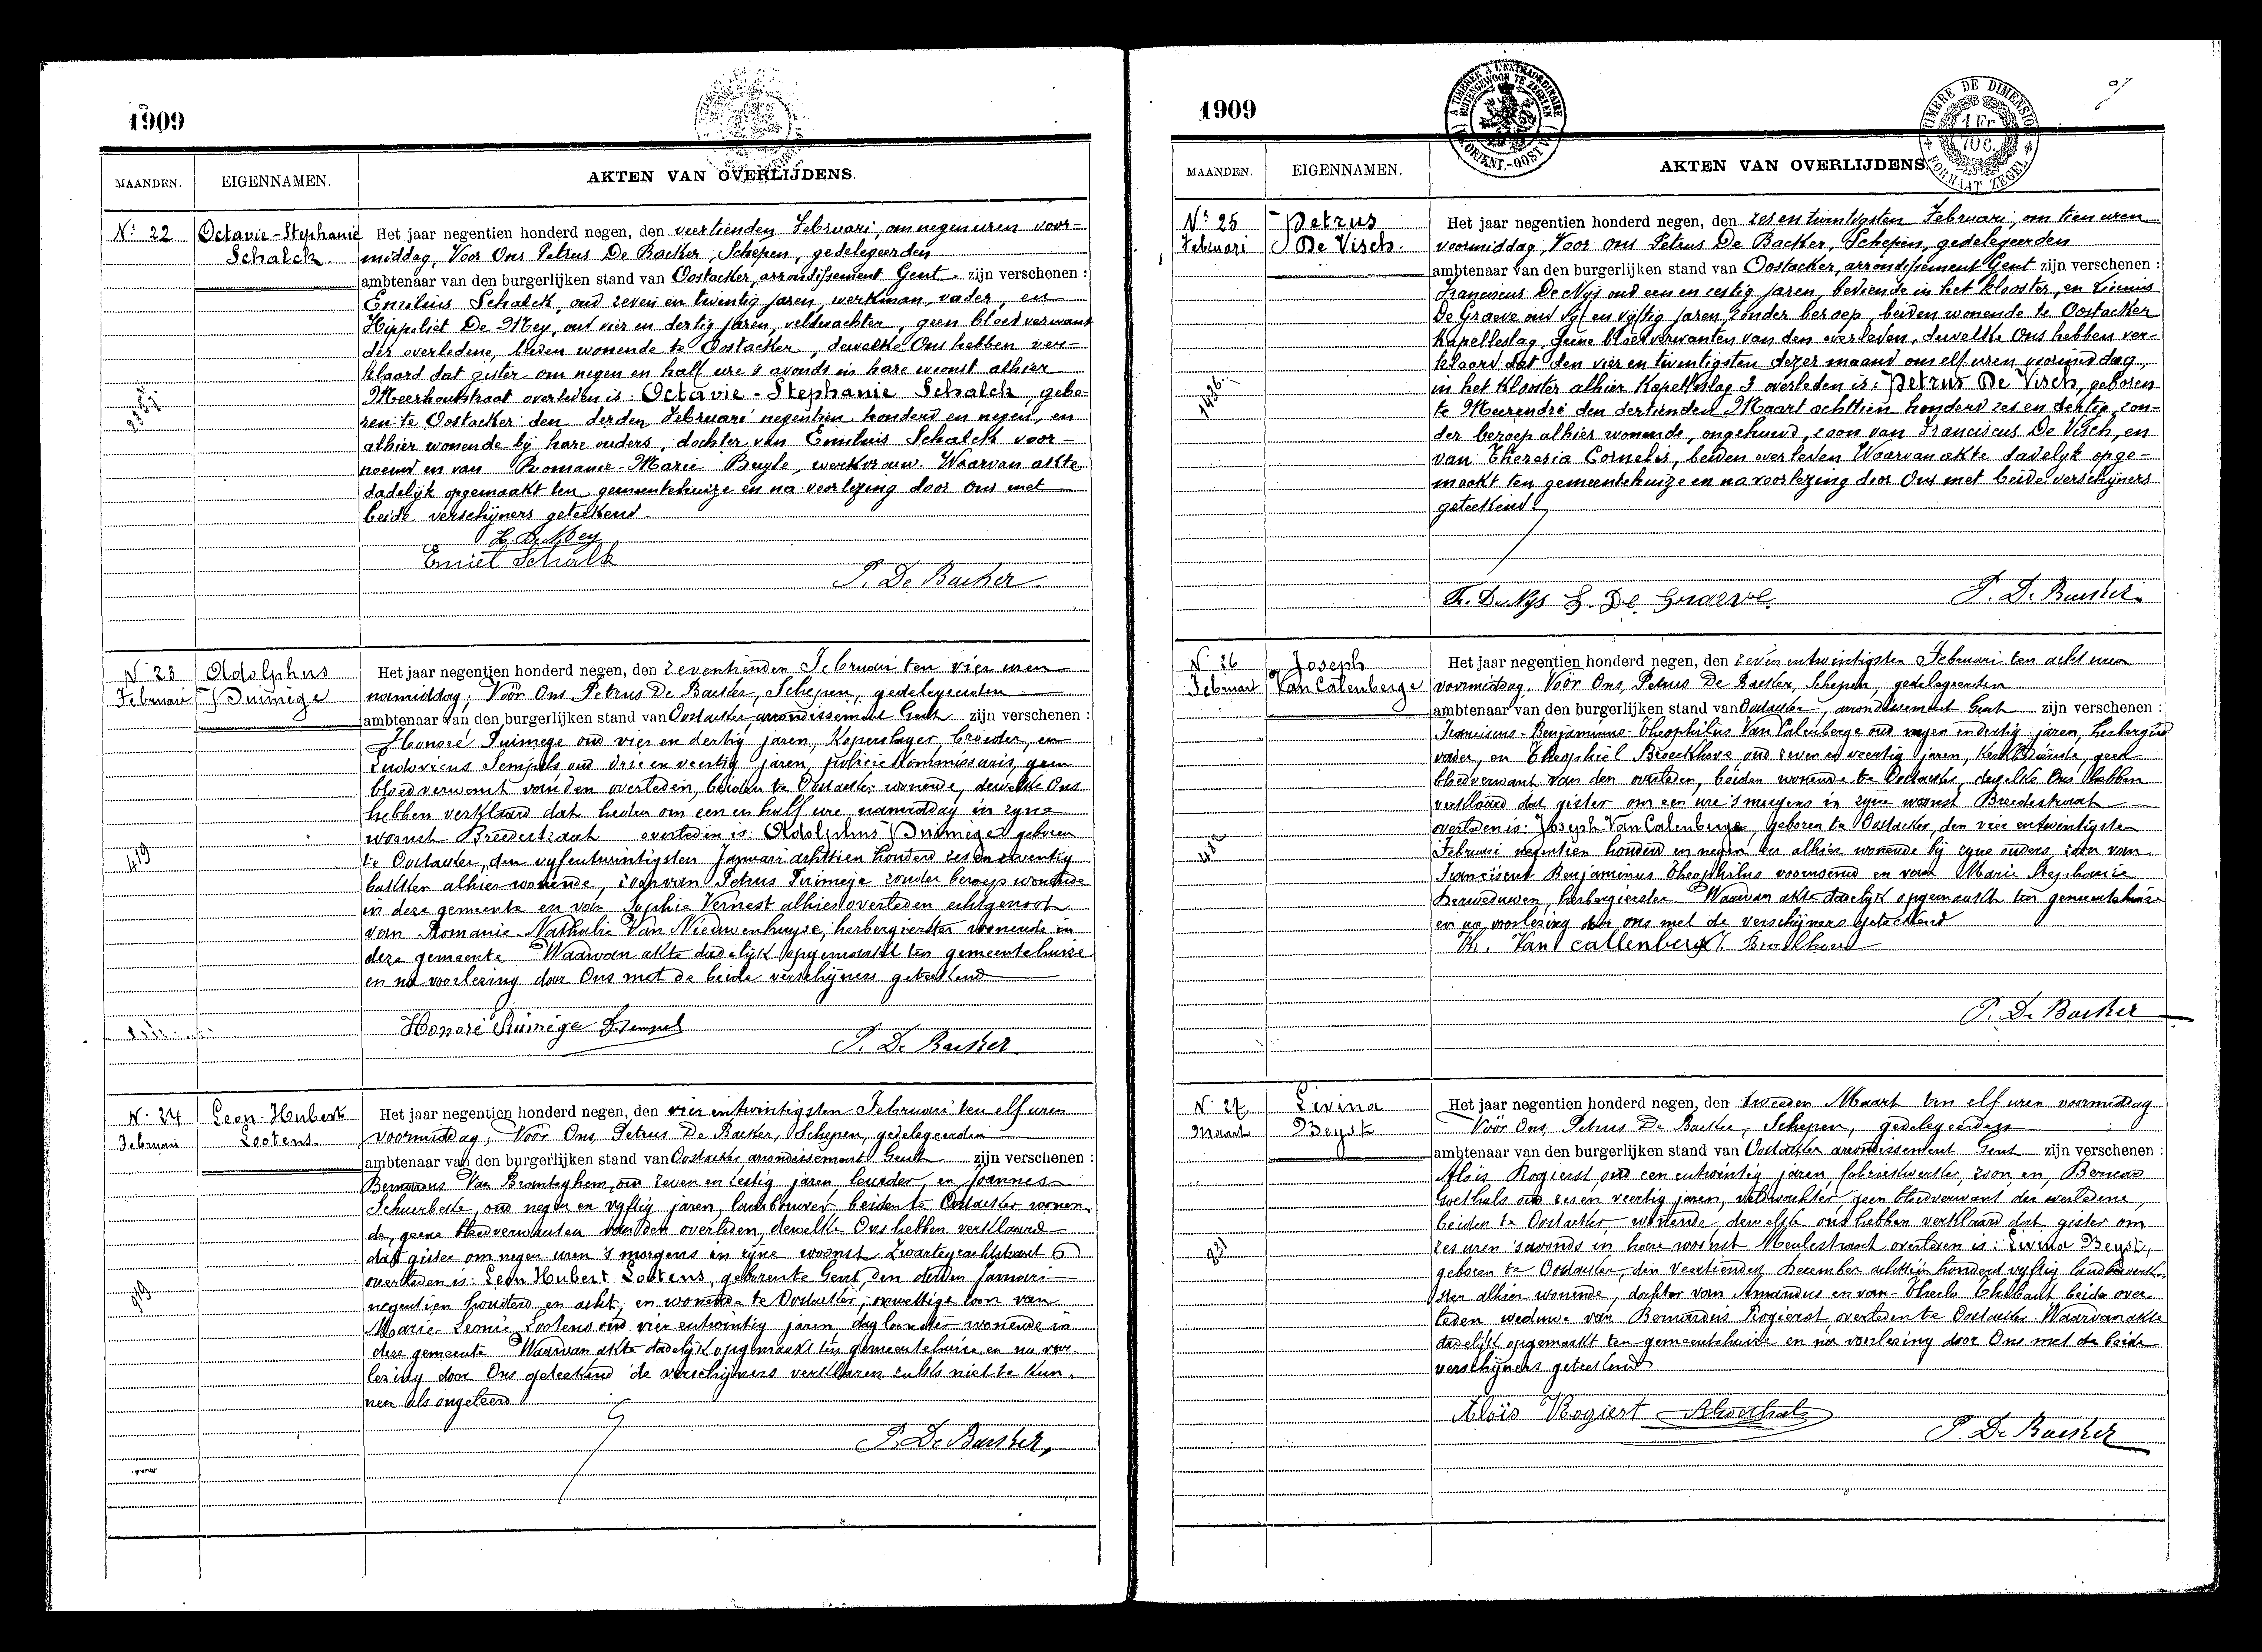 1909
MAANDEN. EIGENNAMEN. AKTEN VAN OVERLIJDENS.
No. 22 Octavie-Stephanie Schalck
Het jaar negentien honderd negen, den veertienden Februari, om negen uren voor-
middag, Voor Ons Petrus De Backer, Schepen, gedelegeerden
ambtenaar van den burgerlijken stand van Oostacker, arrondissement Gent. zijn verschenen :
Emilius Schalck, oud zeven en twintig jaren, werkman, vader, en
Hippoliet De Mey, oud vier en dertig jaren, veldwachter, geen bloedverwant
der overledene, beiden wonende te Oostacker, dewelke Ons hebben ver-
klaard dat gister om negen en half ure 's avonds in hare woonst alhier
Meerhoutstraat overleden is: Octavie-Stephanie Schalck, gebo-
ren te Oostacker den derden Februari negentien honderd en negen, en
alhier wonende bij hare ouders, dochter van Emilius Schalck voor-
noemd en van Romanie-Marie Buyle, werkvrouw. Waarvan akte
dadelijk opgemaakt ten gemeentehuize en na voorlezing door Ons met
beide verschijners geteekend.
H. De Mey
Emiel Schalk
P. De Backer
No. 23 Februari Adolphus Puimège
Het jaar negentien honderd negen, den zeventienden Februari ten vier uren
namiddag, Voor Ons Petrus De Backer, Schepen, gedelegeerden
ambtenaar van den burgerlijken stand van Oostacker arrondissement Gent zijn verschenen :
Honoré Puimège oud vier en dertig jaren, koperslager broeder, en
Ludovicus Sempels oud drie en veertig jaren, policie Kommissaris, geen
bloedverwant van den overleden, beiden te Oostacker wonende, dewelke Ons
hebben verklaard dat heden om een en half ure namiddag in zyne
woonst Breedestraat overleden is: Adolphus Puimège geboren
te Oostacker, den vyfentwintigsten Januari achttien honderd zes en zeventig
bakker alhier wonende, zoon van Petrus Puimège zonder beroep wonende
in deze gemeente en van Sophie Vernest alhier overleden echtgenoot
van Romanie Nathalie Van Nieuwenhuyse, herbergierster wonende in
deze gemeente Waarvan akte dadelyk opgemaakt ten gemeentehuize
en na voorlezing door Ons met de beide verschijners geteekend
419
Honoré Puimège Sempels
P. De Backer
No. 24 Februari Leon-Hubert Lootens
Het jaar negentien honderd negen, den vier entwintigsten Februari ten elf uren
voormiddag, Voor Ons Petrus De Backer, Schepen, gedelegeerden
ambtenaar van den burgerlijken stand van Oostacker arrondissement Gent zijn verschenen :
Bernardus Van Branteghem, oud zeven en zestig jaren, leurder, en Joannes
Schuerbeke, oud negen en vyftig jaren, landbouwer beiden te Oostacker wonen-
de, geene bloedverwanten van den overleden, dewelke Ons hebben verklaard
dat gister om negen uren 's morgens in zyne woonst Zwartegrachtstraat 6
overleden is: Leon Hubert Lootens, geboren te Gent, den derden Januari
negentien honderd en acht, en wonende te Oostacker, onwettige zoon van
Marie-Leonie Lootens oud vier entwintig jaren dagloonster wonende in
deze gemeente Waarvan akte dadelyk opgemaakt ten gemeentehuize en na voor-
lezing door Ons geteekend de verschijners verklaren zulks niet te kun-
nen als ongeleerd
919
P. De Backer
1909
A TIMBRER A L'EXTRAORDINAIRE
BUITENGEWOON TE ZEGELEN
TIMBRE DE DIMENSION
1 Fr
FORMAAT ZEGEL
MAANDEN. EIGENNAMEN. AKTEN VAN OVERLIJDENS.
No. 25 Februari Petrus De Visch.
Het jaar negentien honderd negen, den zes en twintigsten Februari, om tien uren
voormiddag, Voor ons Petrus De Backer, Schepen, gedelegeerden
ambtenaar van den burgerlijken stand van Oostacker, arrondissement Gent zijn verschenen :
Franciscus De Nys oud een en zestig jaren, bediende in het klooster, en Livinus
De Graeve oud vyf en vyftig jaren, zonder beroep, beiden wonende te Oostacker
Kapelleslag, geene bloedverwanten van den overleden, dewelke Ons hebben ver-
klaard dat den vier en twintigsten dezer maand om elf uren voormiddag,
in het klooster alhier Kapelleslag 3 overleden is: Petrus De Visch, geboren
te Meerendré den dertienden Maart achttien honderd zes en dertig, zon-
der beroep alhier wonende, ongehuwd, zoon van Franciscus De Visch, en
van Theresia Cornelis, beiden overleden Waarvan akte dadelyk opge-
maakt ten gemeentehuize en na voorlezing door Ons met beide verschijners
geteekend.
1436
Fr. De Nys L. De Graeve
P. De Backer
No. 26 Februari Joseph Van Calenberge
Het jaar negentien honderd negen, den zeven entwintigsten Februari ten acht uren
voormiddag, Voor Ons, Petrus De Backer, Schepen, gedelegeerden
ambtenaar van den burgerlijken stand van Oostacker, arrondissement Gent zijn verschenen :
Franciscus-Benjaminus-Theophilus Van Calenberge oud negen en dertig jaren, herbergier
vader, en Theophiel Broeckhove oud zeven en veertig jaren, Kerkbediende, geen
bloedverwant van den overleden, beiden wonende te Oostacker, dewelke Ons hebben
verklaard dat gister om een ure 's morgens in zyne woonst Breedestraat
overleden is: Joseph Van Calenberge, geboren te Oostacker, den vier entwintigsten
Februari negentien honderd en negen en alhier wonende bij zyne ouders, zoon van
Franciscus Benjaminus Theophilus voornoemd en van Marie Stephanie
Derweduwen, herbergierster Waarvan akte dadelyk opgemaakt ten gemeentehuize
en na voorlezing door ons met de verschijners geteekend
Th. Van Callenberge
P. De Backer
No. 27 Maart Livina Beyst
Het jaar negentien honderd negen, den tweeden Maart ten elf uren voormiddag
Voor Ons, Petrus De Backer, Schepen, gedelegeerden
ambtenaar van den burgerlijken stand van Oostacker arrondissement Gent zijn verschenen :
Aloïs Rogierst, oud een entwintig jaren, fabriekwerker, zoon, en, Bernard
Goethals oud zes en veertig jaren, veldwachter geen bloedverwant der overledene,
beiden te Oostacker wonende dewelke ons hebben verklaard dat gister om
zes uren 's avonds in hare woonst Meulestraat overleden is: Livina Beyst,
geboren te Oostacker, den veertienden December achttien honderd vyftig landbewerk-
ster alhier wonende, dochter van Amandus en van Thecla Chebaut, beide over-
leden weduwe van Bernardus Rogierst overleden te Oostacker Waarvan akte
dadelijk opgemaakt ten gemeentehuize en na voorlezing door Ons met de beide
verschijners geteekend
931
Aloïs Rogierst B. Goethals
P. De Backer